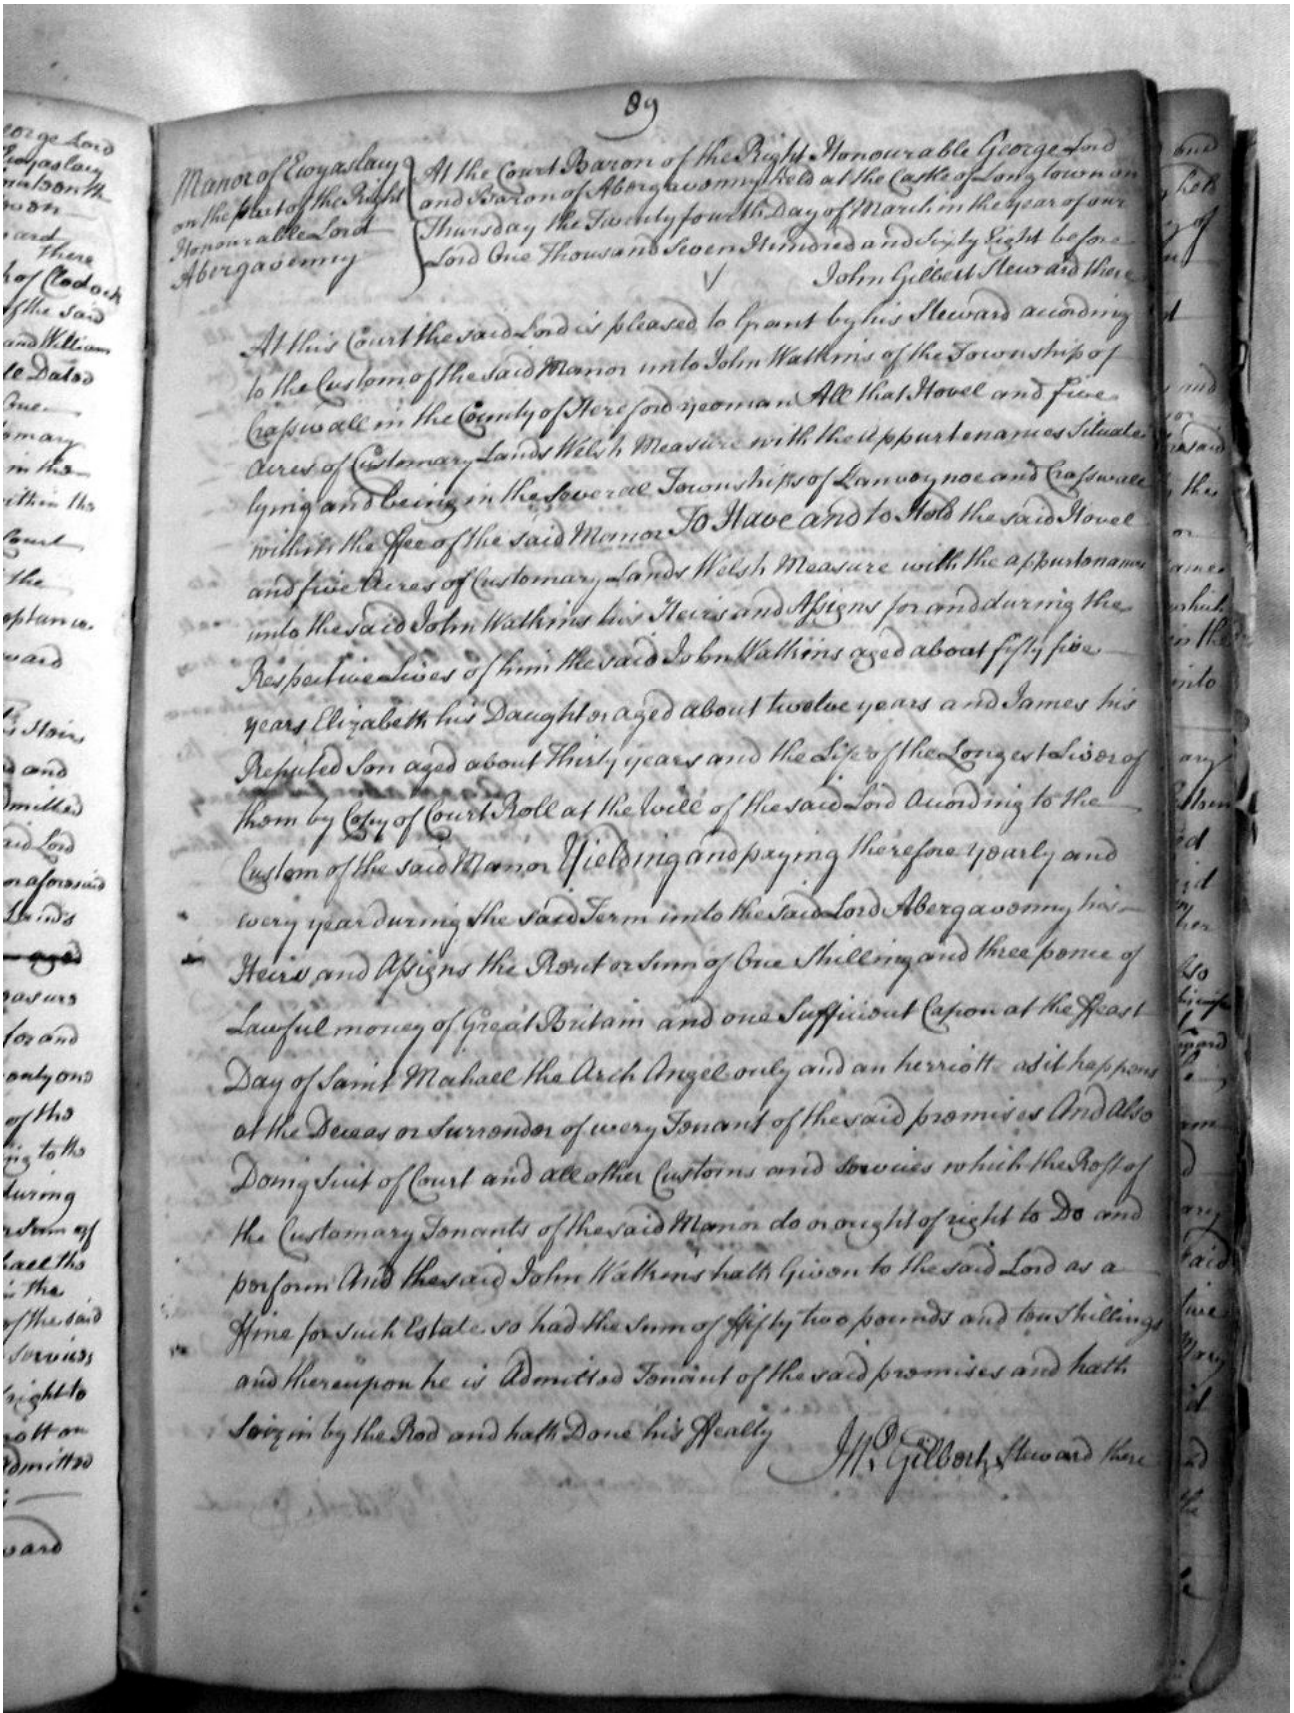 89
Manor of Ewyaslacy
on the part of the Right
Honourable Lord
Abergavenny
At the Court Baron of the Right Honourable George Lord
and Baron of Abergavenny held at the Castle of Longtown on
Thursday the Twenty fourth Day of March in the year of our
Lord One Thousand Seven Hundred and Sixty Eight before
John Gilbert Steward there
At this Court the said Lord is pleased to Grant by his Steward acording
to the Custom of the said Manor unto John Watkins of the Township of
Crasswall in the County of Hereford yeoman All that Hovel and five
acres of Customary Lands Welsh Measure with the Appurtenances Situate
lying and being in the Several Townships of Lanvoynoe and Crasswall
within the ffee of the said Manor To Have and to Hold the said Hovel
and five Acres of Customary Lands Welsh Measure with the appurtenances
unto the said John Watkins his Heirs and Assigns for and during the
Respective Lives of him the said John Watkins aged about fifty five
years Elizabeth his Daughter aged about twelve years and James his
Reputed Son aged about Thirty years and the Life of the Longest Liver of
them by Copy of Court Roll at the Will of the said Lord Acording to the
Custom of the said Manor Yielding and paying therefore yearly and
every year during the said Term unto the said Lord Abergavenny his
Heirs and Assigns the Rent or Sum of One Shilling and three pence of
Lawful money of Great Britain and one Sufficient Capon at the ffeast
Day of Saint Mahael the Arch Angel only and an herriott as it happens
at the Deceas or Surrender of every Tenant of the said premises And Also
Doing Suit of Court and all other Customs and Services which the Rest of
the Customary Tenants of the said Manor do or ought of right to Do and
perform And the said John Watkins hath Given to the said Lord as a
ffine for such Estate so had the sum of ffifty two pounds and ten Shillings
and thereupon he is Admitted Tenant of the said premises and hath
Seizin by the Rod and hath Done his ffealty
Jno. Gilbert Steward there